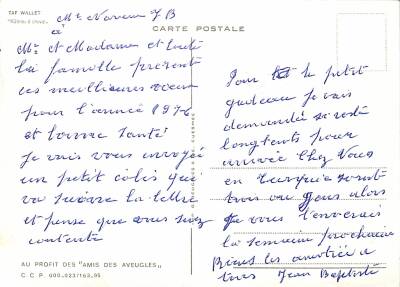 TAF WALLET
à Mr Noreau J B
CARTE POSTALE
Mr et Madame et toute
La famille présent
ces meilleures voeux
pour l'année 1976
et bonne santé
Je vais vous envoyé
un petit colis qui
va suivre la lettre
et pense que vous serez
contente
AU PROFIT DES "AMIS DES AVEUGLES"
C.C.P. 000.023/163.95
Pour le petit
cadeau je vais
demandé si reste
longtents pour
arrivée chez vous
en Turquie si rest
trois ou jours alors
Je vous l'enverais
la semaine prochaine
Biens les amitiée a
tous Jean Baptiste